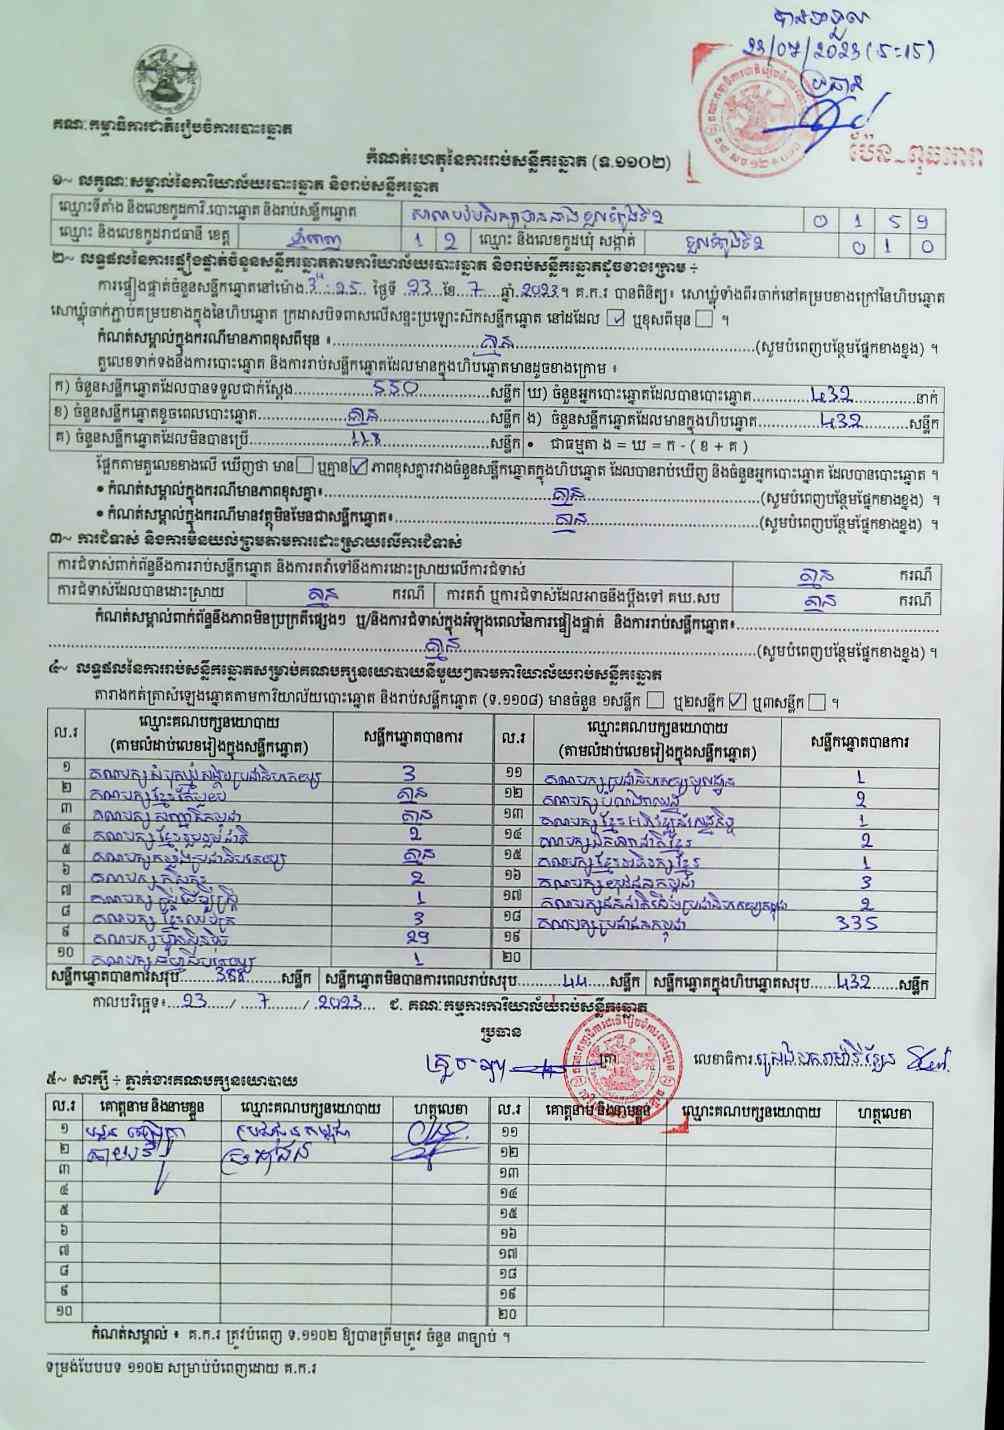 បានទទួល
23/07/2023 (5:15)
ប្រធាន
ប៉ែន ពុធអារា
គណៈកម្មាធិការជាតិរៀបចំការបោះឆ្នោត
កំណត់ហេតុនៃការរាប់សន្លឹកឆ្នោត (ទ.១១០២)
១~ លក្ខណៈសម្គាល់នៃការិយាល័យបោះឆ្នោត និងរាប់សន្លឹកឆ្នោត
ឈ្មោះទីតាំង និងលេខកូដការិ.បោះឆ្នោត និងរាប់សន្លឹកឆ្នោត ទួលទំពូងទី២ 0 1 5 9
ឈ្មោះ និងលេខកូដរាជធានី ខេត្ត ភ្នំពេញ 1 2 ឈ្មោះ និងលេខកូដឃុំ សង្កាត់ ទួលទំពូងទី២ 0 1 0
២~ លទ្ធផលនៃការផ្ទៀងផ្ទាត់ចំនួនសន្លឹកឆ្នោតតាមការិយាល័យបោះឆ្នោត និងរាប់សន្លឹកឆ្នោតដូចខាងក្រោម ÷
ការផ្ទៀងផ្ទាត់ចំនួនសន្លឹកឆ្នោតនៅម៉ោង 3:25 ថ្ងៃទី 23 ខែ 7 ឆ្នាំ 2023។ គ.ក.រ បានពិនិត្យ៖ សោឃ្លុំទាំងពីរចាក់នៅគម្របខាងក្រៅនៃហិបឆ្នោត
សោឃ្លុំចាក់ភ្ជាប់គម្របខាងក្នុងនៃហិបឆ្នោត ក្រដាសបិទពាសលើសន្ទះប្រឡោះសិកសន្លឹកឆ្នោត នៅដដែល ☑ ឬខុសពីមុន ☐ ។
កំណត់សម្គាល់ក្នុងករណីមានភាពខុសពីមុន ៖ គ្មាន (សូមបំពេញបន្ថែមផ្នែកខាងខ្នង) ។
តួលេខទាក់ទងនឹងការបោះឆ្នោត និងការរាប់សន្លឹកឆ្នោតដែលមានក្នុងហិបឆ្នោតមានដូចខាងក្រោម ៖
ក) ចំនួនសន្លឹកឆ្នោតដែលបានទទួលជាក់ស្តែង 550 សន្លឹក ឃ) ចំនួនអ្នកបោះឆ្នោតដែលបានបោះឆ្នោត 432 នាក់
ខ) ចំនួនសន្លឹកឆ្នោតខូចពេលបោះឆ្នោត គ្មាន សន្លឹក ង) ចំនួនសន្លឹកឆ្នោតដែលមានក្នុងហិបឆ្នោត 432 សន្លឹក
គ) ចំនួនសន្លឹកឆ្នោតដែលមិនបានប្រើ 118 សន្លឹក • ជាធម្មតា ង = ឃ = ក - ( ខ + គ )
ផ្អែកតាមតួលេខខាងលើ ឃើញថា មាន ☐ ឬគ្មាន ☑ ភាពខុសគ្នារវាងចំនួនសន្លឹកឆ្នោតក្នុងហិបឆ្នោត ដែលបានរាប់ឃើញ និងចំនួនអ្នកបោះឆ្នោត ដែលបានបោះឆ្នោត ។
• កំណត់សម្គាល់ក្នុងករណីមានភាពខុសគ្នា៖ គ្មាន (សូមបំពេញបន្ថែមផ្នែកខាងខ្នង) ។
• កំណត់សម្គាល់ក្នុងករណីមានវត្ថុមិនមែនជាសន្លឹកឆ្នោត៖ គ្មាន (សូមបំពេញបន្ថែមផ្នែកខាងខ្នង) ។
៣~ ការជំទាស់ និងការមិនយល់ព្រមតាមការដោះស្រាយលើការជំទាស់
ការជំទាស់ពាក់ព័ន្ធនឹងការរាប់សន្លឹកឆ្នោត និងការតវ៉ាទៅនឹងការដោះស្រាយលើការជំទាស់ គ្មាន ករណី
ការជំទាស់ដែលបានដោះស្រាយ គ្មាន ករណី ការតវ៉ា ឬការជំទាស់ដែលអាចនឹងប្តឹងទៅ គឃ.សប គ្មាន ករណី
កំណត់សម្គាល់ពាក់ព័ន្ធនឹងភាពមិនប្រក្រតីផ្សេងៗ ឬ/និងការជំទាស់ក្នុងអំឡុងពេលនៃការផ្ទៀងផ្ទាត់ និងការរាប់សន្លឹកឆ្នោត៖
គ្មាន (សូមបំពេញបន្ថែមផ្នែកខាងខ្នង) ។
៤~ លទ្ធផលនៃការរាប់សន្លឹកឆ្នោតសម្រាប់គណបក្សនយោបាយនីមួយៗតាមការិយាល័យរាប់សន្លឹកឆ្នោត
តារាងកត់ត្រាសំឡេងឆ្នោតតាមការិយាល័យបោះឆ្នោត និងរាប់សន្លឹកឆ្នោត (ទ.១១០៨) មានចំនួន ១សន្លឹក ☐ ឬ២សន្លឹក ☑ ឬ៣សន្លឹក ☐ ។
ល.រ ឈ្មោះគណបក្សនយោបាយ (តាមលំដាប់លេខរៀងក្នុងសន្លឹកឆ្នោត) សន្លឹកឆ្នោតបានការ ល.រ ឈ្មោះគណបក្សនយោបាយ (តាមលំដាប់លេខរៀងក្នុងសន្លឹកឆ្នោត) សន្លឹកឆ្នោតបានការ
១ គណបក្សសំបុកឃ្មុំសង្គមប្រជាធិបតេយ្យ 3 ១១ គណបក្សប្រជាធិបតេយ្យមូលដ្ឋាន 1
២ គណបក្សខ្មែរតែមួយ គ្មាន ១២ គណបក្ស 2
៣ គណបក្ស កម្ពុជា គ្មាន ១៣ គណបក្សខ្មែរអភិវឌ្ឍន៍សេដ្ឋកិច្ច 1
៤ គណបក្សខ្មែររួបរួមជាតិ 2 ១៤ គណបក្សឯកភាពជាតិខ្មែរ 2
៥ គណបក្សកម្លាំងប្រជាធិបតេយ្យ គ្មាន ១៥ គណបក្សខ្មែរអភិរក្សខ្មែរ 1
៦ គណបក្សកសិករ 2 ១៦ គណបក្សយុវជនកម្ពុជា 3
៧ គណបក្សស្ត្រីដើម្បីស្ត្រី 1 ១៧ គណបក្សជនជាតិដើមប្រជាធិបតេយ្យកម្ពុជា 2
៨ គណបក្សខ្មែរឈប់ក្រ 3 ១៨ គណបក្សប្រជាជនកម្ពុជា 335
៩ គណបក្សហ៊្វុនស៊ិនប៉ិច 29 ១៩
១០ គណបក្សធម្មាធិបតេយ្យ 1 ២០
សន្លឹកឆ្នោតបានការសរុប 388 សន្លឹក សន្លឹកឆ្នោតមិនបានការពេលរាប់សរុប 44 សន្លឹក សន្លឹកឆ្នោតក្នុងហិបឆ្នោតសរុប 432 សន្លឹក
កាលបរិច្ឆេទ៖ 23 / 7 / 2023 ជ. គណៈកម្មការការិយាល័យរាប់សន្លឹកឆ្នោត
ប្រធាន
ត្រា លេខាធិការ
៥~ សាក្សី ÷ ភ្នាក់ងារគណបក្សនយោបាយ
ល.រ គោត្តនាម និងនាមខ្លួន ឈ្មោះគណបក្សនយោបាយ ហត្ថលេខា ល.រ គោត្តនាម និងនាមខ្លួន ឈ្មោះគណបក្សនយោបាយ ហត្ថលេខា
១ ប្រជាជនកម្ពុជា ១១
២ ១២
៣ ១៣
៤ ១៤
៥ ១៥
៦ ១៦
៧ ១៧
៨ ១៨
៩ ១៩
១០ ២០
កំណត់សម្គាល់ ៖ គ.ក.រ ត្រូវបំពេញ ទ.១១០២ ឱ្យបានត្រឹមត្រូវ ចំនួន ៣ច្បាប់ ។
ទម្រង់បែបបទ ១១០២ សម្រាប់បំពេញដោយ គ.ក.រ